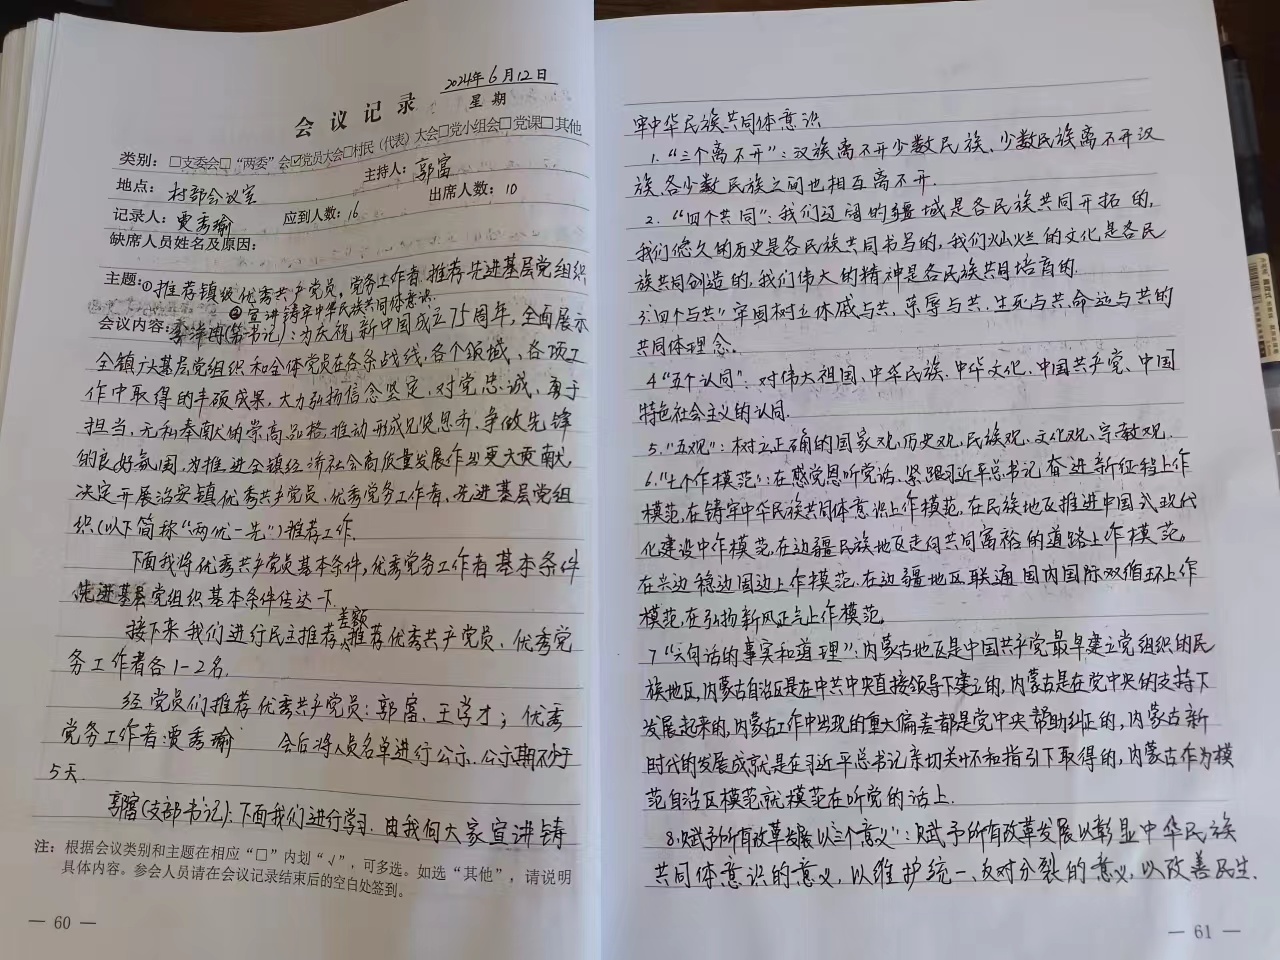 2024年6月12日
会议记录 星期
类别：□支委会□“两委”会☑党员大会□村民（代表）大会□党小组会□党课□其他
地点：村部会议室 主持人：郭富
记录人：贾秀瑜 应到人数：16 出席人数：10
缺席人员姓名及原因：
主题：①推荐镇级优秀共产党员，党务工作者，推荐先进基层党组织
②宣讲铸牢中华民族共同体意识.
会议内容：(第一书记)：为庆祝新中国成立75周年，全面展示
全镇广大基层党组织和全体党员在各条战线、各个领域、各项工
作中取得的丰硕成果，大力弘扬信念坚定、对党忠诚、勇于
担当、无私奉献的崇高品格，推动形成见贤思齐、争做先锋
的良好氛围，为推进全镇经济社会高质量发展作出更大贡献，
决定开展治安镇优秀共产党员、优秀党务工作者、先进基层党组
织(以下简称“两优一先”)推荐工作.
下面我将优秀共产党员基本条件，优秀党务工作者基本条件
先进基层党组织基本条件传达一下.
接下来我们进行民主推荐，差额推荐优秀共产党员、优秀党
务工作者各1-2名.
经党员们推荐优秀共产党员：郭富、王学才；优秀
党务工作者：贾秀瑜 会后将人员名单进行公示.公示期不少于
5天.
郭富(支部书记)：下面我们进行学习.由我向大家宣讲铸
注：根据会议类别和主题在相应“□”内划“√”，可多选。如选“其他”，请说明
具体内容。参会人员请在会议记录结束后的空白处签到。
— 60 —
牢中华民族共同体意识
1.“三个离不开”：汉族离不开少数民族、少数民族离不开汉
族、各少数民族之间也相互离不开.
2.“四个共同”：我们辽阔的疆域是各民族共同开拓的，
我们悠久的历史是各民族共同书写的，我们灿烂的文化是各民
族共同创造的，我们伟大的精神是各民族共同培育的.
3.“四个与共”牢固树立休戚与共、荣辱与共、生死与共、命运与共的
共同体理念。
4“五个认同”：对伟大祖国、中华民族、中华文化、中国共产党、中国
特色社会主义的认同.
5.“五观”：树立正确的国家观、历史观、民族观、文化观、宗教观.
6.“七个作模范”：在感党恩听党话、紧跟习近平总书记奋进新征程上作
模范，在铸牢中华民族共同体意识上作模范，在民族地区推进中国式现代
化建设中作模范，在边疆民族地区走向共同富裕的道路上作模范，
在兴边稳边固边上作模范，在边疆地区联通国内国际双循环上作
模范，在弘扬新风正气上作模范.
7“六句话的事实和道理”：内蒙古地区是中国共产党最早建立党组织的民
族地区，内蒙古自治区是在中共中央直接领导下建立的，内蒙古是在党中央的支持下
发展起来的，内蒙古工作中出现的重大偏差都是党中央帮助纠正的，内蒙古新
时代的发展成就是在习近平总书记亲切关怀和指引下取得的，内蒙古作为模
范自治区模范就模范在听党的话上.
8.“赋予所有改革发展以三个意义”：赋予所有改革发展以彰显中华民族
共同体意识的意义，以维护统一、反对分裂的意义，以改善民生.
— 61 —